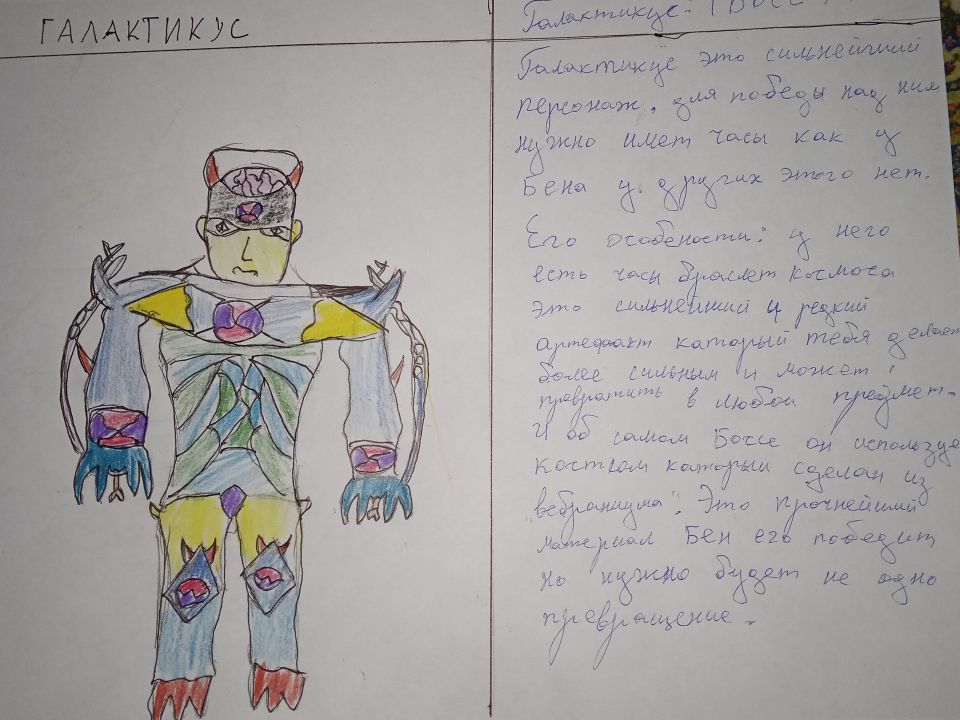 ГАЛАКТИКУС
Галактикус: (БОСС)
Галактикус это сильнейший
персонаж, для победы над ним
нужно имет часы как у
Бена у других этого нет.
Его особености: у него
есть часы браслет космоса
это сильнейший и редкий
артефакт каторый тебя делает
более сильным и может
превратить в любой предмет.
И об самом Боссе он используе
костюм каторый сделан из
"вебраниума". Это прочнейший
материал Бен его победит
но нужно будет не одно
превращение.